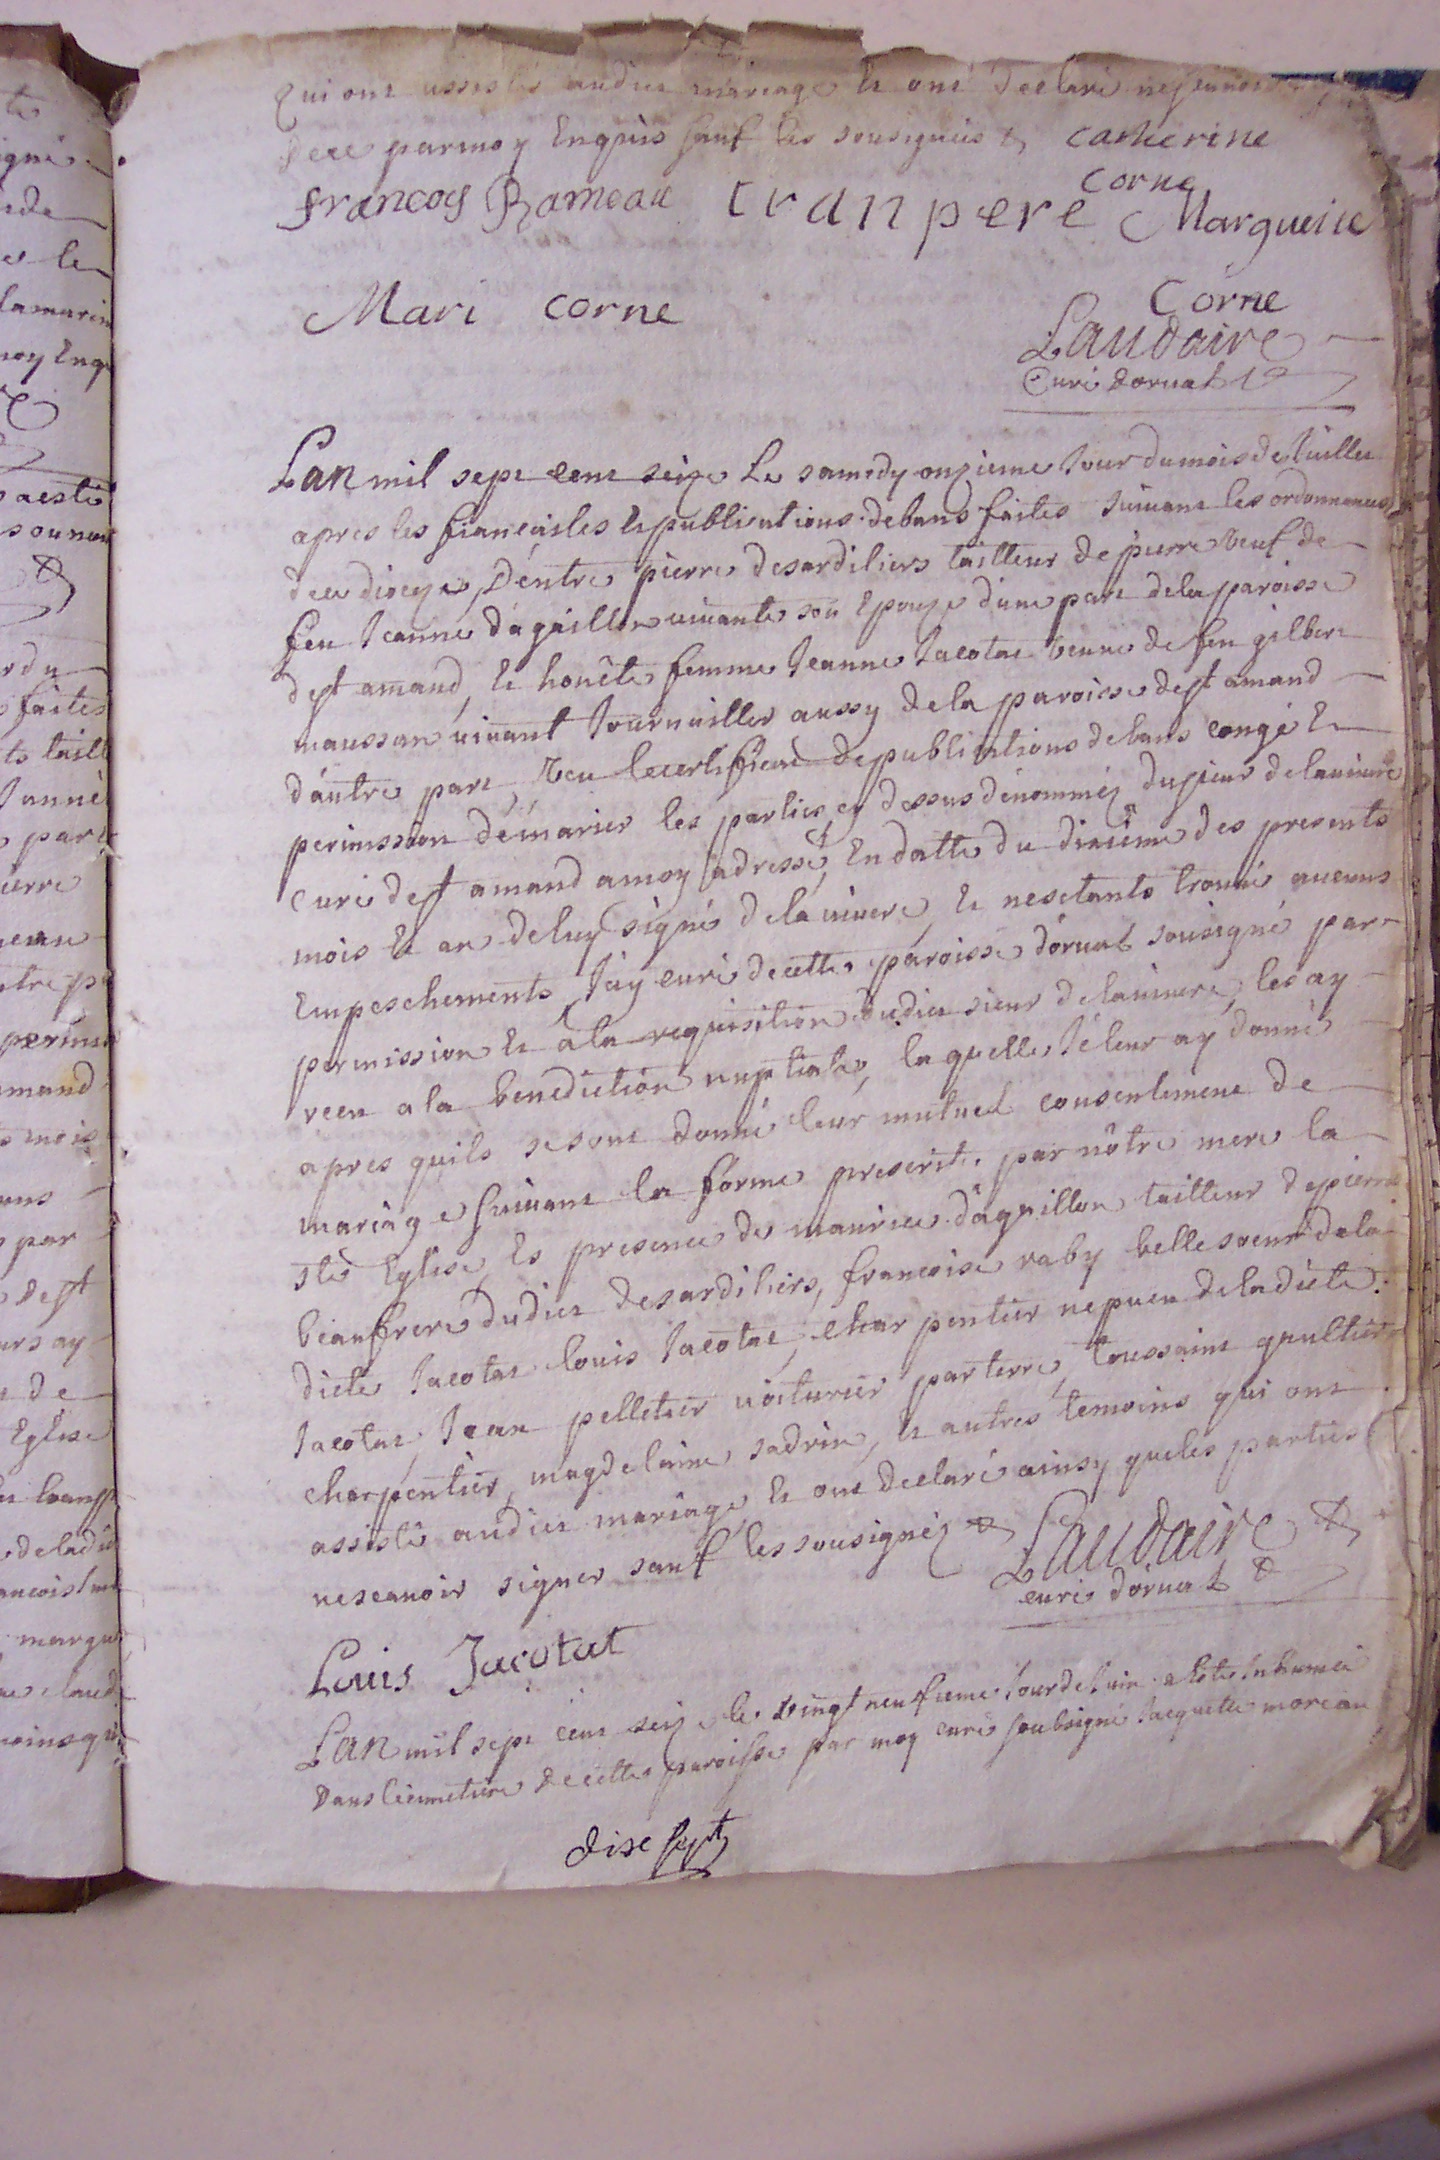 qui ont assistés audict mariage Et ont declaré ne scavoir
parmoy Enquis sauf les sousignées & catherine
corne
francoys Rameau tranpere Margueite
Mari corne Corne
Laudaire
Curé dorval
Lan mil sept cent seize Le samedy onzieme Jour du mois de Juillet
apres les fiancailes Et publications de bans faites suivant les ordonnances
de ce diocese, Dentre pierre desardiliers tailleur de pierre veuf de
feu Jeanne daguillon vivante son Epouze dune part de la paroisse
de st amand, Et honête femme Jeanne Jacotat veuve de feu gilbert
maussan vivant Journailler aussy de la paroisse de st amand
dautre part, veu le certificat de publications de bans congé Et
permission de marier les parties cy dessus dénommez du sieur delaviuere
curé de st amand amoy adressé, En datte du dixième des presents
mois Et an de luy signé delaviuere, Et nesetants trouvé aucuns
Empeschements, Jay curé de cette paroisse dorval sousigné par
permission Et a la requisition dudict sieur delaviuere, les ay
receu a la benediction nuptiale, laquelle Je leur ay donné
apres quils se sont donné leur mutuel consentement de
mariage suivant la forme prescrite par nôtre mere la
ste Eglise, Es presence de maurice daguillon tailleur de pierre
beaufrere dudict desardiliers, francoise raby belle soeur de la
dicte Jacotat louis Jacotat, charpentier nepueu de ladicte
Jacotat, Jean pelletier voiturier par terre, toussaint gaultier
charpentier, magdelaine sadrin, Et autres temoins qui ont
assisté audict mariage, Et ont declaré ainsy que les parties
ne scavoir signer sauf les sousignéz
Laudaire
curé dorval
Louis Jacotat
Lan mil sept cent seize le vingt neufieme Jour de Juin a Esté Inhumée
Dans Cimetiere de cette paroisse par moy curé soubsigné Jacquette moreau
dise sept